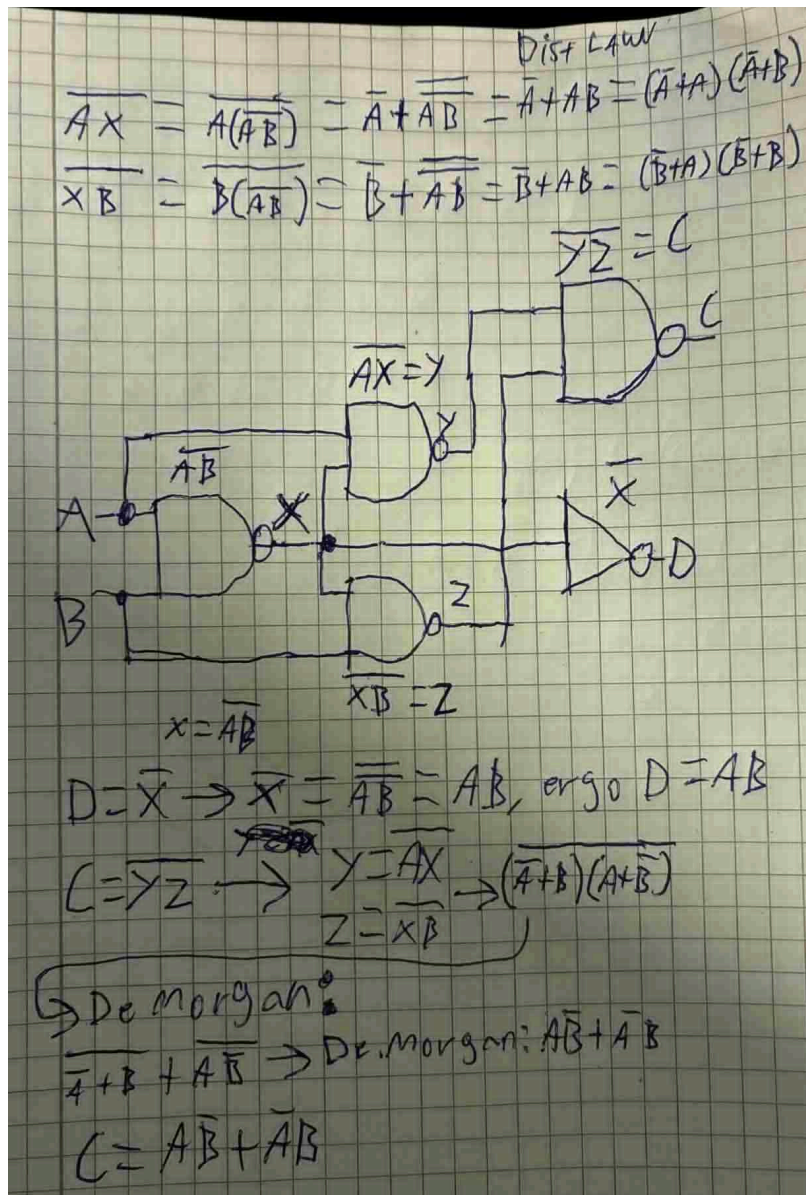 Dist LAW
A̅X̅ = \overline{A(\overline{AB})} = \overline{A} + \overline{\overline{AB}} = \overline{A} + AB = (\overline{A}+A)(\overline{A}+B)
\overline{XB} = \overline{B(\overline{AB})} = \overline{B} + \overline{\overline{AB}} = \overline{B} + AB = (\overline{B}+A)(\overline{B}+B)
\overline{YZ} = C
C
\overline{AX} = Y
Y
\overline{AB}
\overline{X}
A
X
D
B
Z
\overline{XB} = Z
X = \overline{AB}
D = \overline{X} → \overline{X} = \overline{\overline{AB}} = AB, ergo D = AB
C = \overline{YZ} → Y = \overline{AX} → \overline{(\overline{A}+B)(A+\overline{B})}
Z = \overline{XB}
De morgan:
\overline{\overline{A}+B} + \overline{A\overline{B}} → De.morgan: A\overline{B} + \overline{A}B
C = A\overline{B} + \overline{A}B